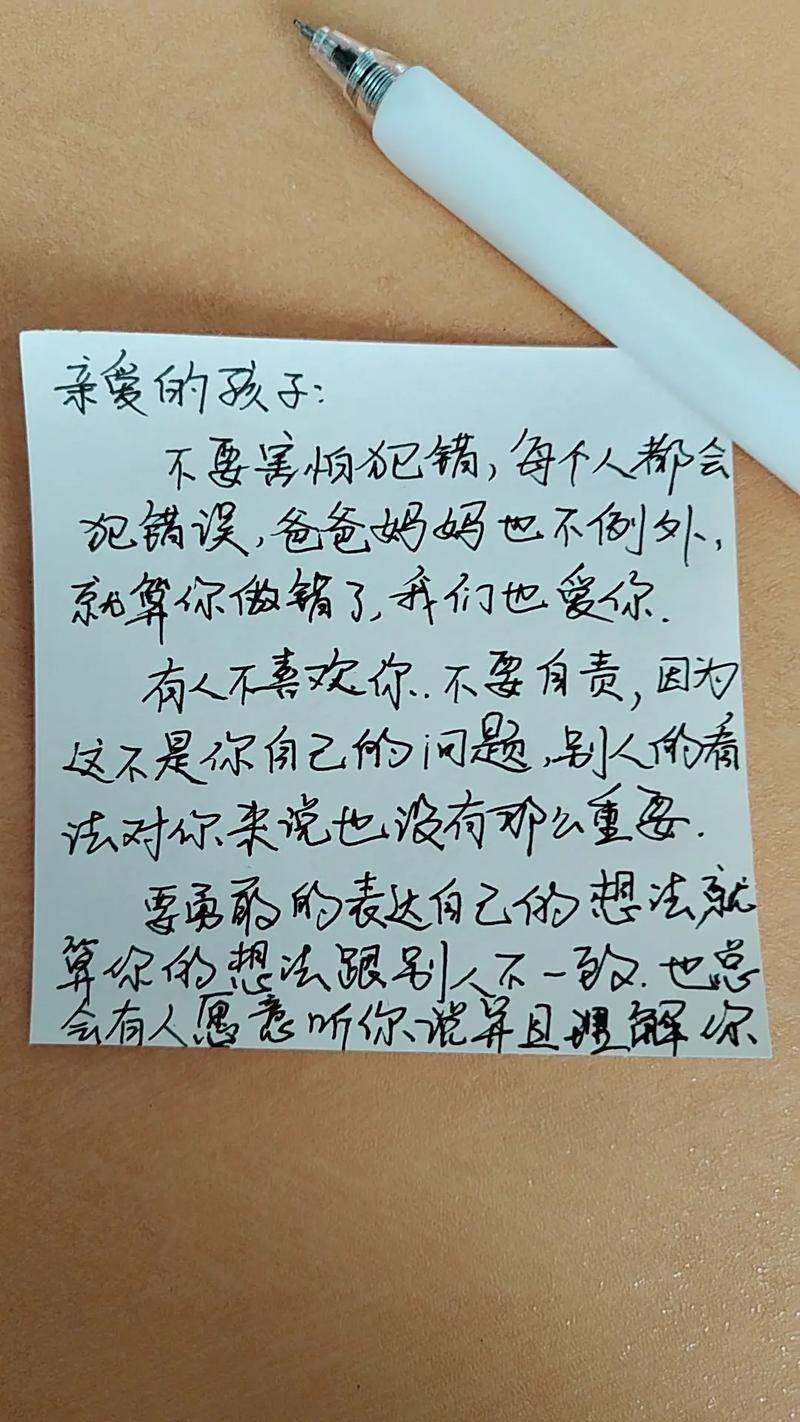 亲爱的孩子：
不要害怕犯错，每个人都会
犯错误，爸爸妈妈也不例外，
就算你做错了，我们也爱你.
有人不喜欢你..不要自责，因为
这不是你自己的问题，别人的看
法对你来说也没有那么重要.
要勇敢的表达自己的想法，就
算你的想法跟别人不一致.也总
会有人愿意听你说并且理解你